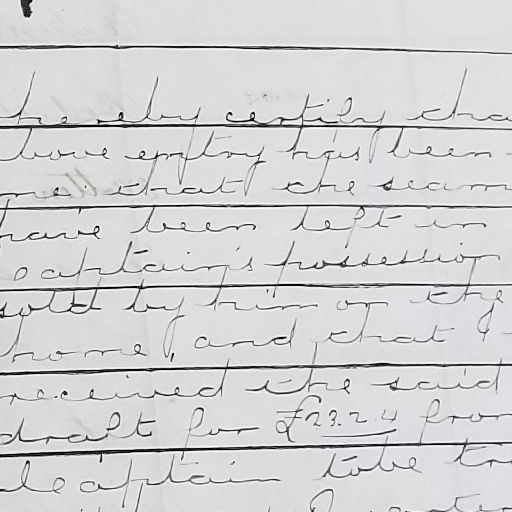 hereby certify tha
bove entry has been
me: that the seam
have been left in
captain's possession
sold by him on the
home, and that I
received the said
draft for £23.2.4 from
captain to be tr